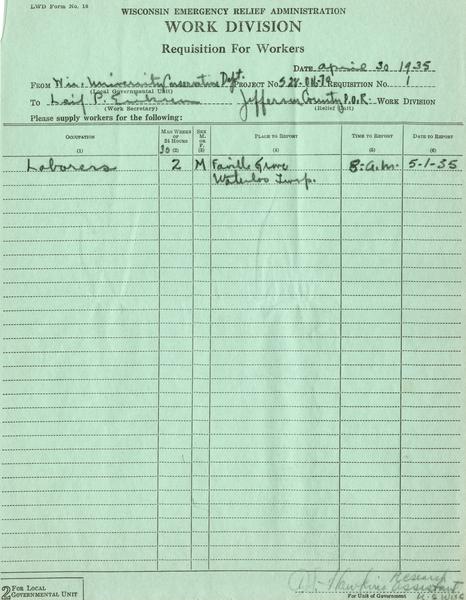 LWD Form No. 16
WISCONSIN EMERGENCY RELIEF ADMINISTRATION
WORK DIVISION
Requisition For Workers
DATE April 30 1935
FROM Wis. University Conservation Dept. PROJECT NO. REQUISITION NO. 1
(Local Governmental Unit)
TO Leif P. Jefferson County WORK DIVISION
(Work Secretary) (Relief Unit)
Please supply workers for the following:
OCCUPATION MAN WEEKS OF 24 HOURS SEX M. OR F. PLACE TO REPORT TIME TO REPORT DATE TO REPORT
(1) 30 (2) (3) (4) (5) (6)
Laborers 2 M Faville Grove 8:a.m. 5-1-35
Waterloo Twsp.
2 FOR LOCAL GOVERNMENTAL UNIT
Hawkins Research Assistant
For Unit of Government U. of Wisc